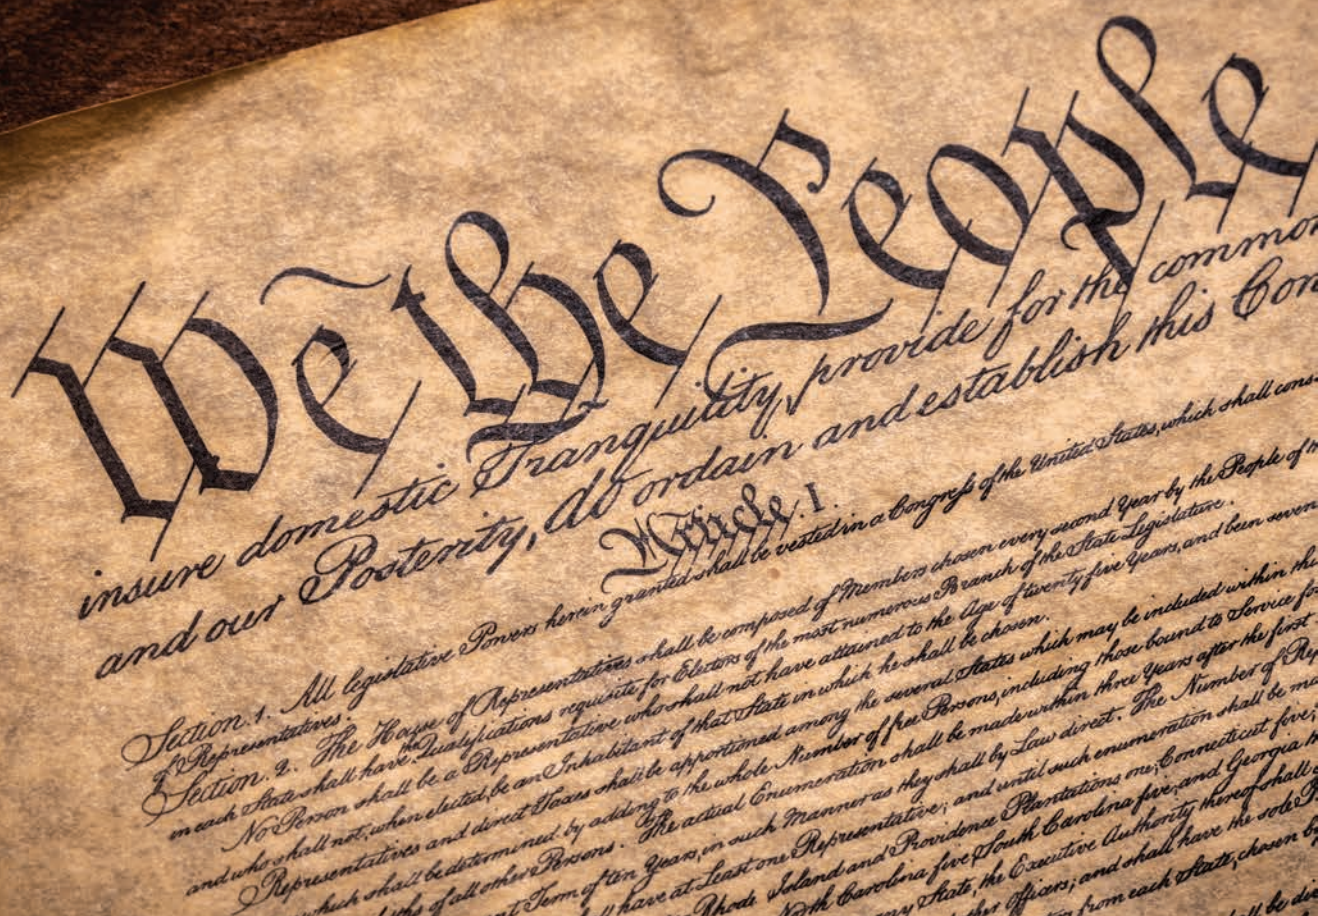 We the People
insure domestic Tranquility, provide for the common
and our Posterity, do ordain and establish this Con
Article. I.
Section. 1. All legislative Powers herein granted shall be vested in a Congress of the United States, which shall cons
of Representatives.
Section. 2. The House of Representatives shall be composed of Members chosen every second Year by the People of th
in each State shall have the Qualifications requisite for Electors of the most numerous Branch of the State Legislature.
No Person shall be a Representative who shall not have attained to the Age of twenty five Years, and been seven
and who shall not, when elected, be an Inhabitant of that State in which he shall be chosen.
Representatives and direct Taxes shall be apportioned among the several States which may be included within this
which shall be determined by adding to the whole Number of free Persons, including those bound to Service for
of all other Persons. The actual Enumeration shall be made within three Years after the first
Term of ten Years, in such Manner as they shall by Law direct. The Number of Rep
have at Least one Representative; and until such enumeration shall be ma
Rhode Island and Providence Plantations one, Connecticut five,
North Carolina five, South Carolina five, and Georgia th
any State, the Executive Authority thereof shall
officers; and shall have the sole P
from each State, chosen by
shall be di